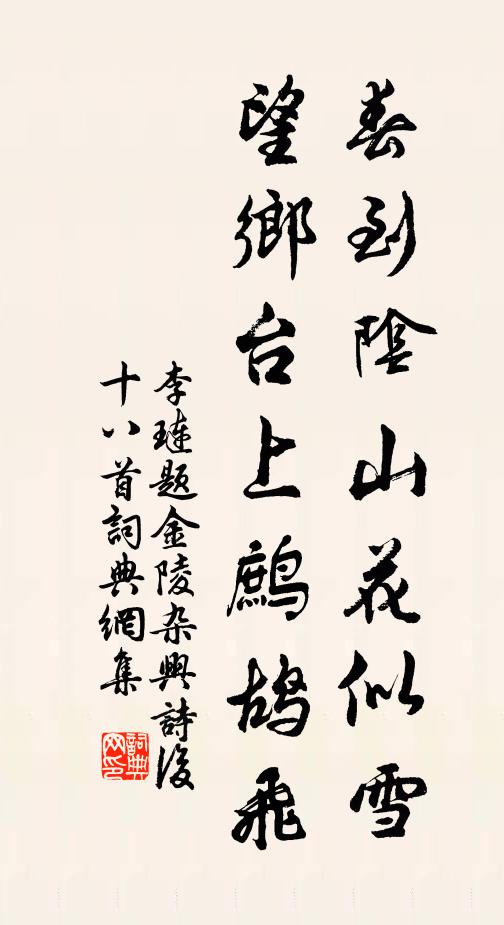 春到陰山花似雪
望鄉台上鷓鴣飛
李璉題金陵杂興詩後
十八首詞典網集
詞典
网印